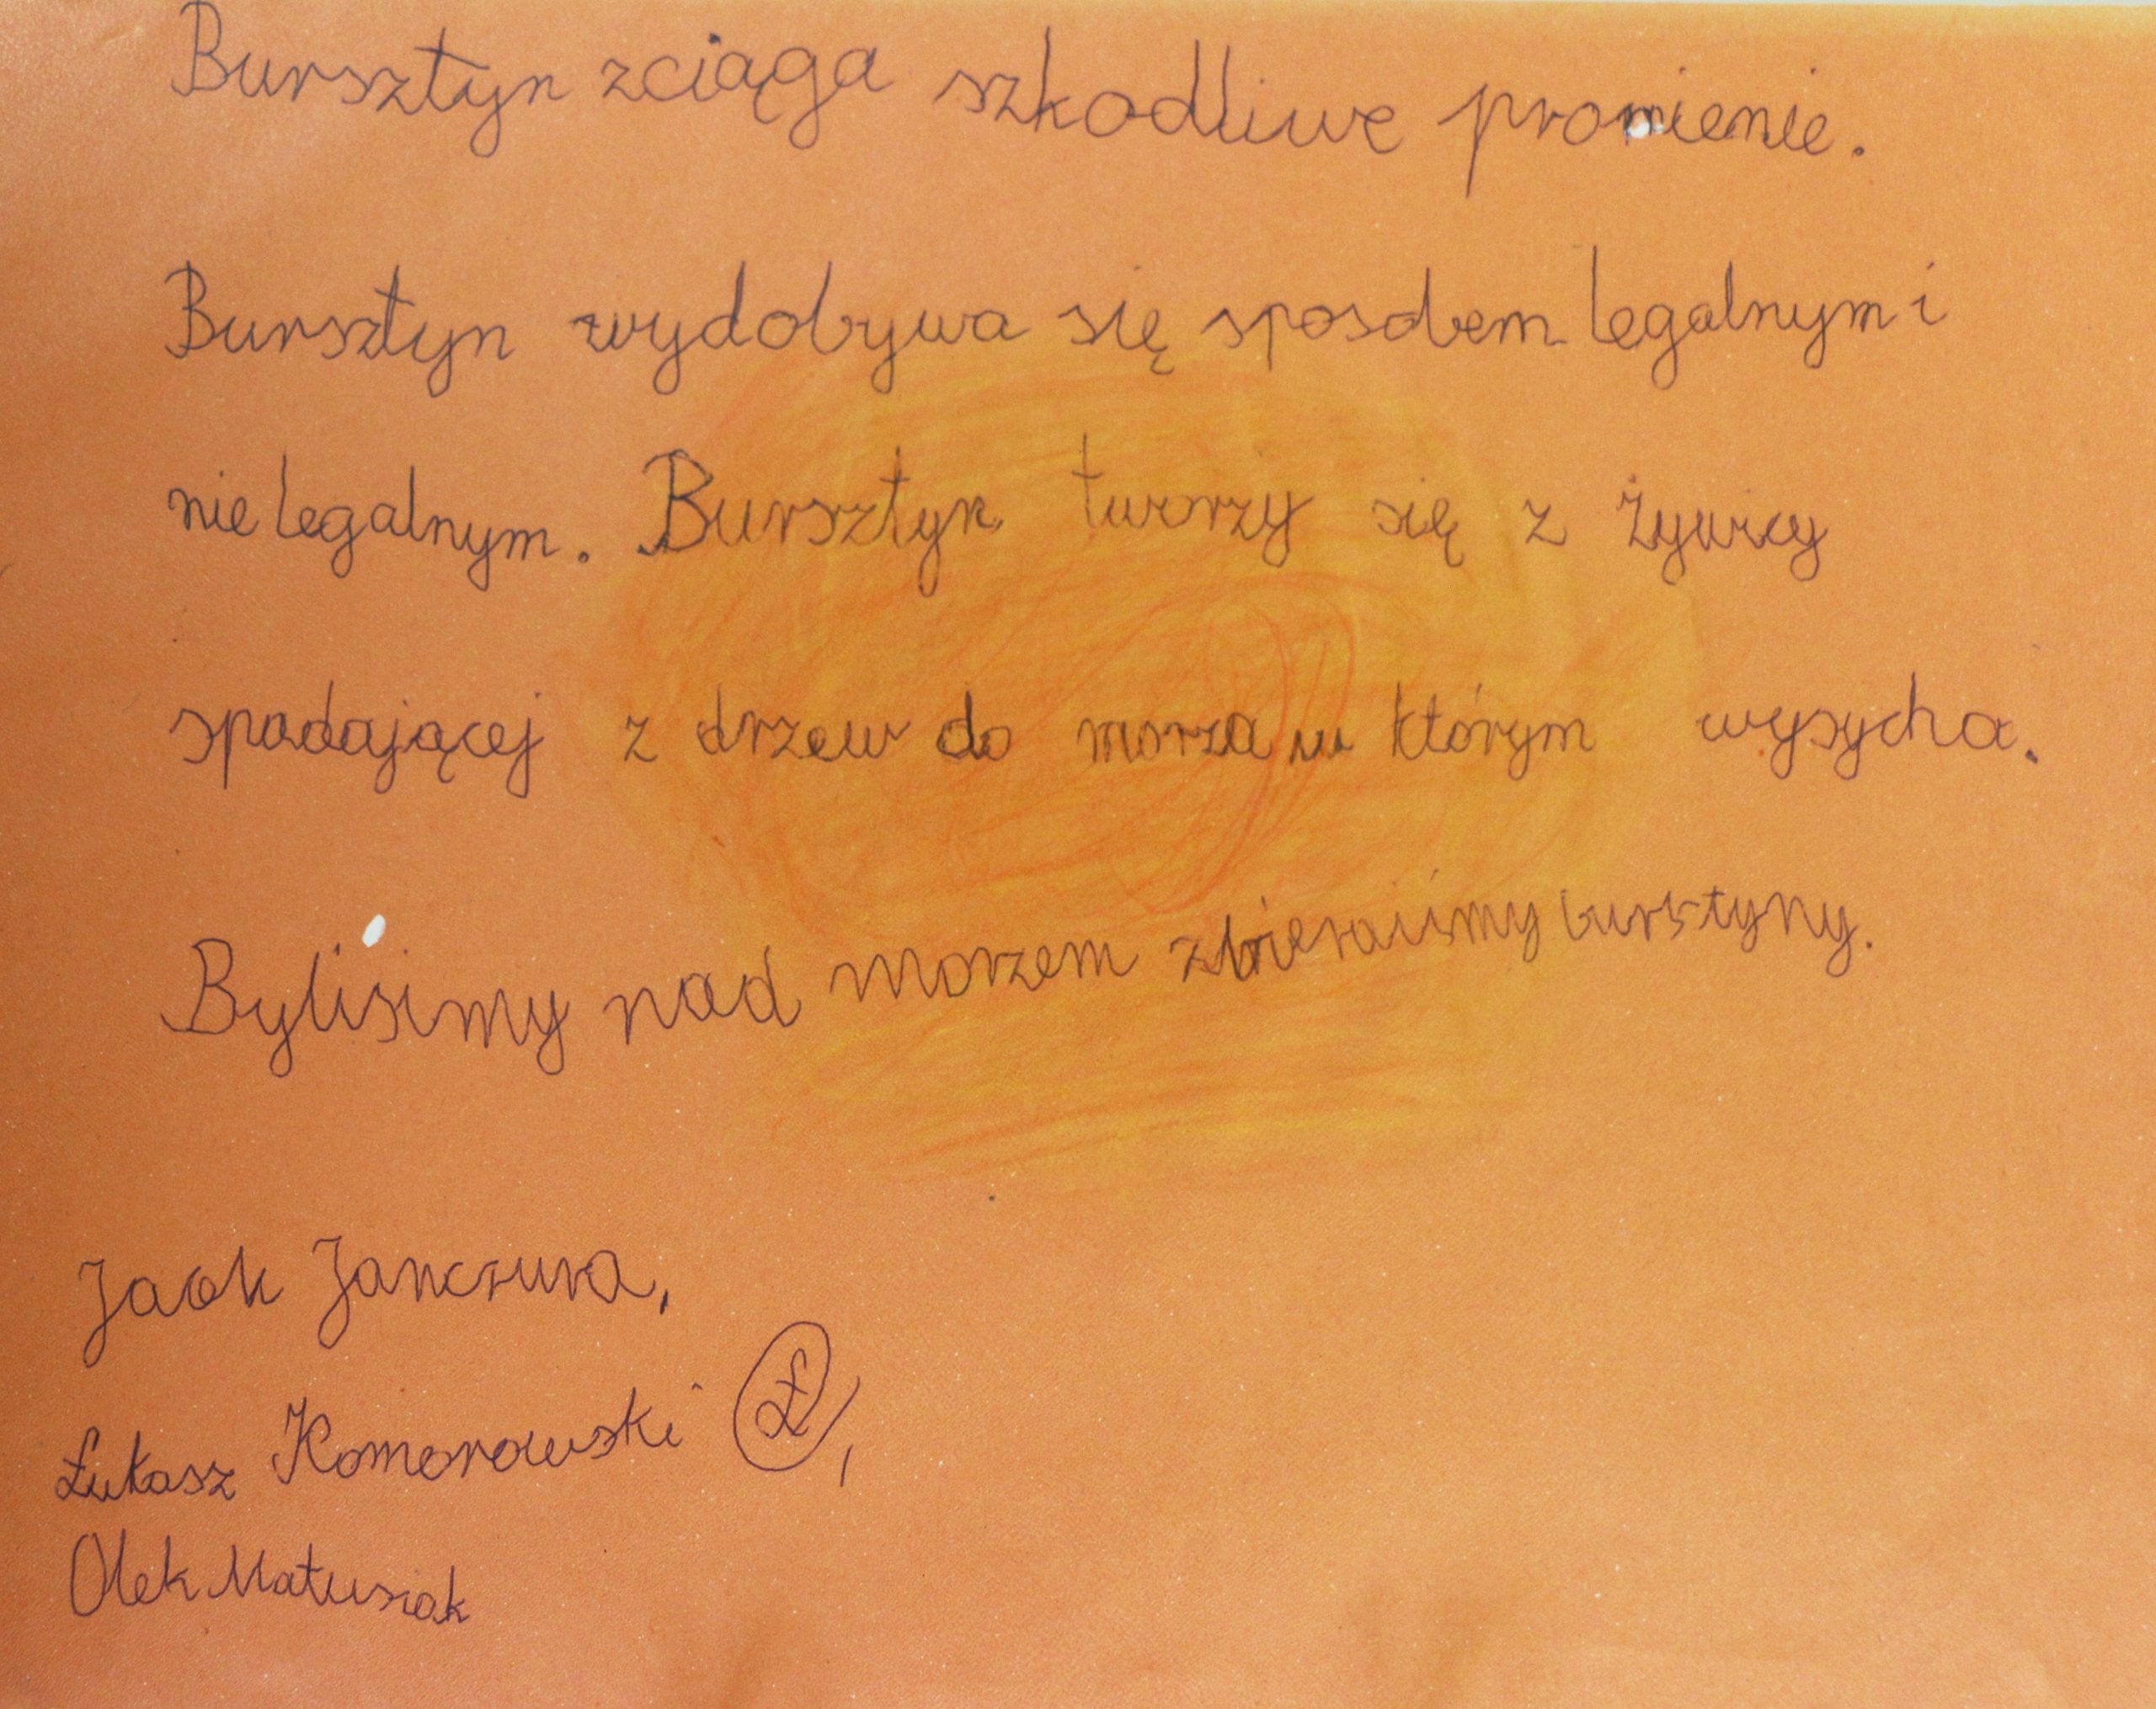 Bursztyn zciąga szkodliwe promienie.
Bursztyn wydobywa się sposobem legalnym i
nie legalnym. Bursztyn tworzy się z żywicy
spadającej z drzew do morza w którym wysycha.
Bylisimy nad morzem zbieraiismy bursztyny.
Jaok Janczura,
Łukasz Komorowski Ł,
Olek Matusiak